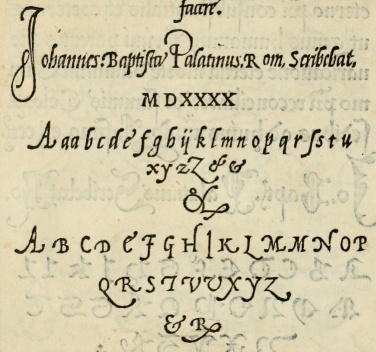 facere.
Johannes Baptista Palatinus. Rom, Scribebat.
MDXXXX
A a a b c d e f g h ij k l m n o p q r ſ s t u
x y z Z & &
&
A B C D E F G H I K L M M N O P
Q R S T V V X Y Z
& R